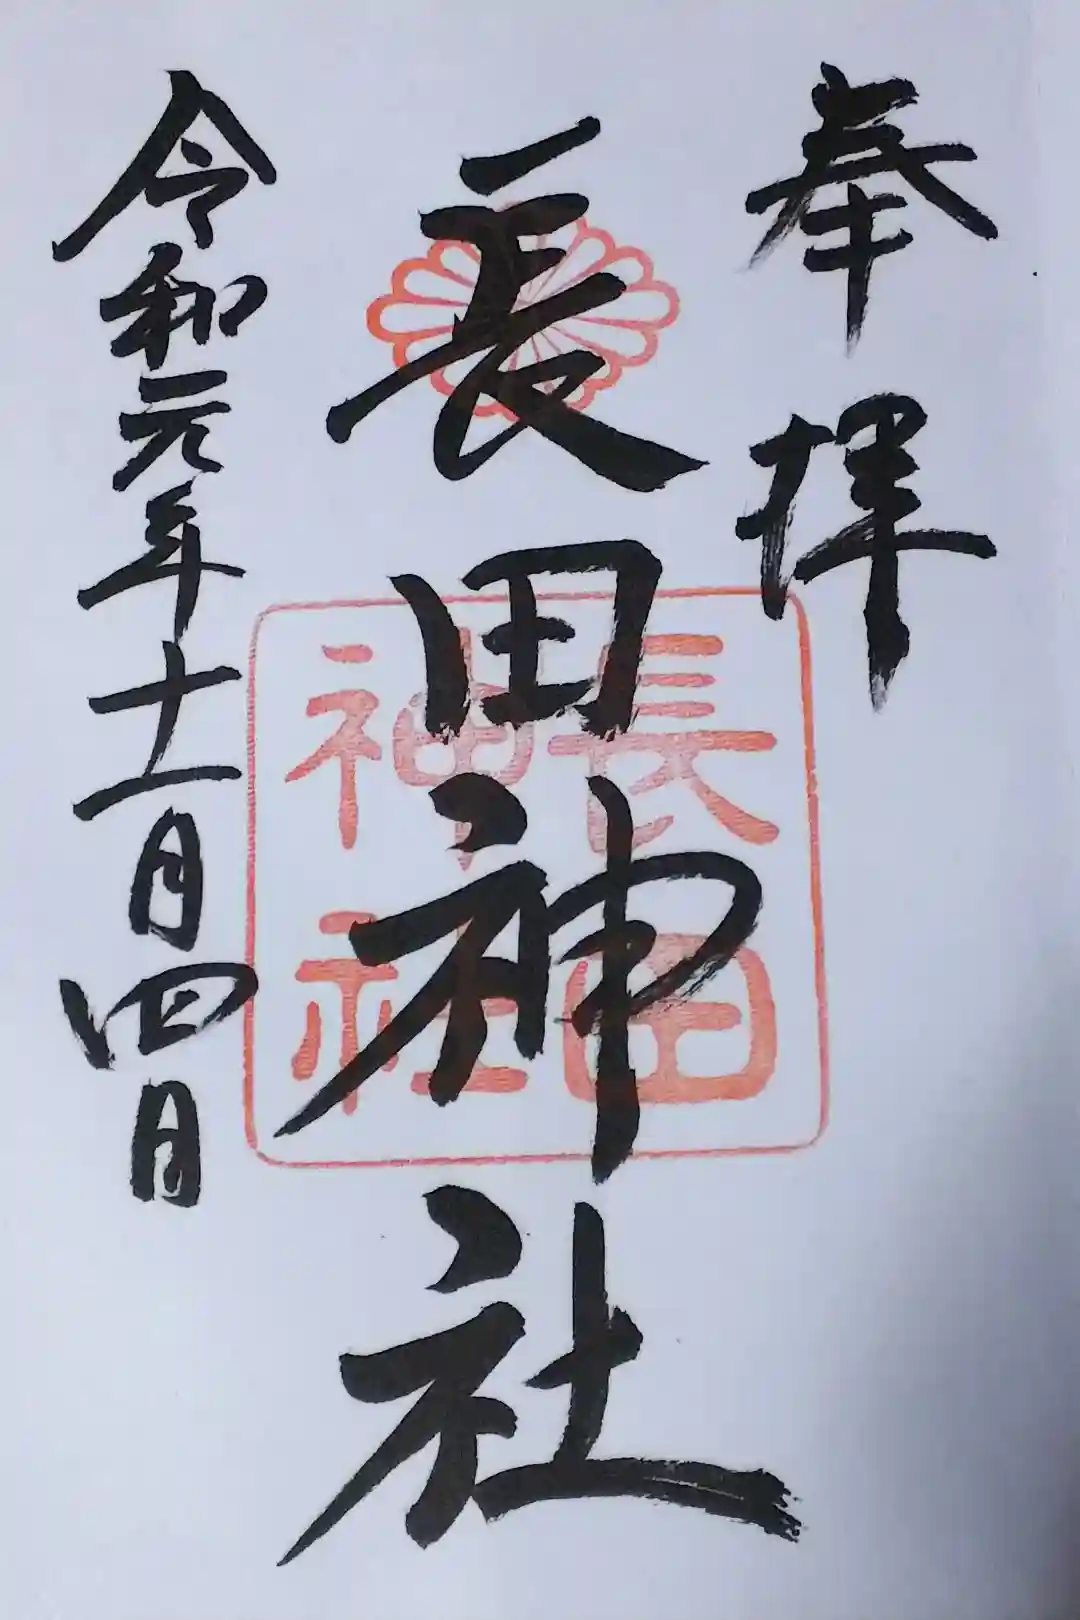 奉拝
長田神社
長田
神社
令和元年十一月四日